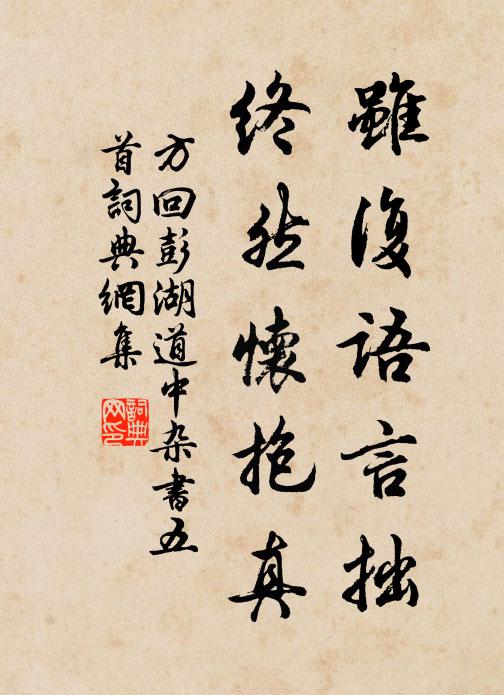 雖復語言拙
終然懷抱真
方回彭湖道中杂書五
首詞典網集
詞典
网印